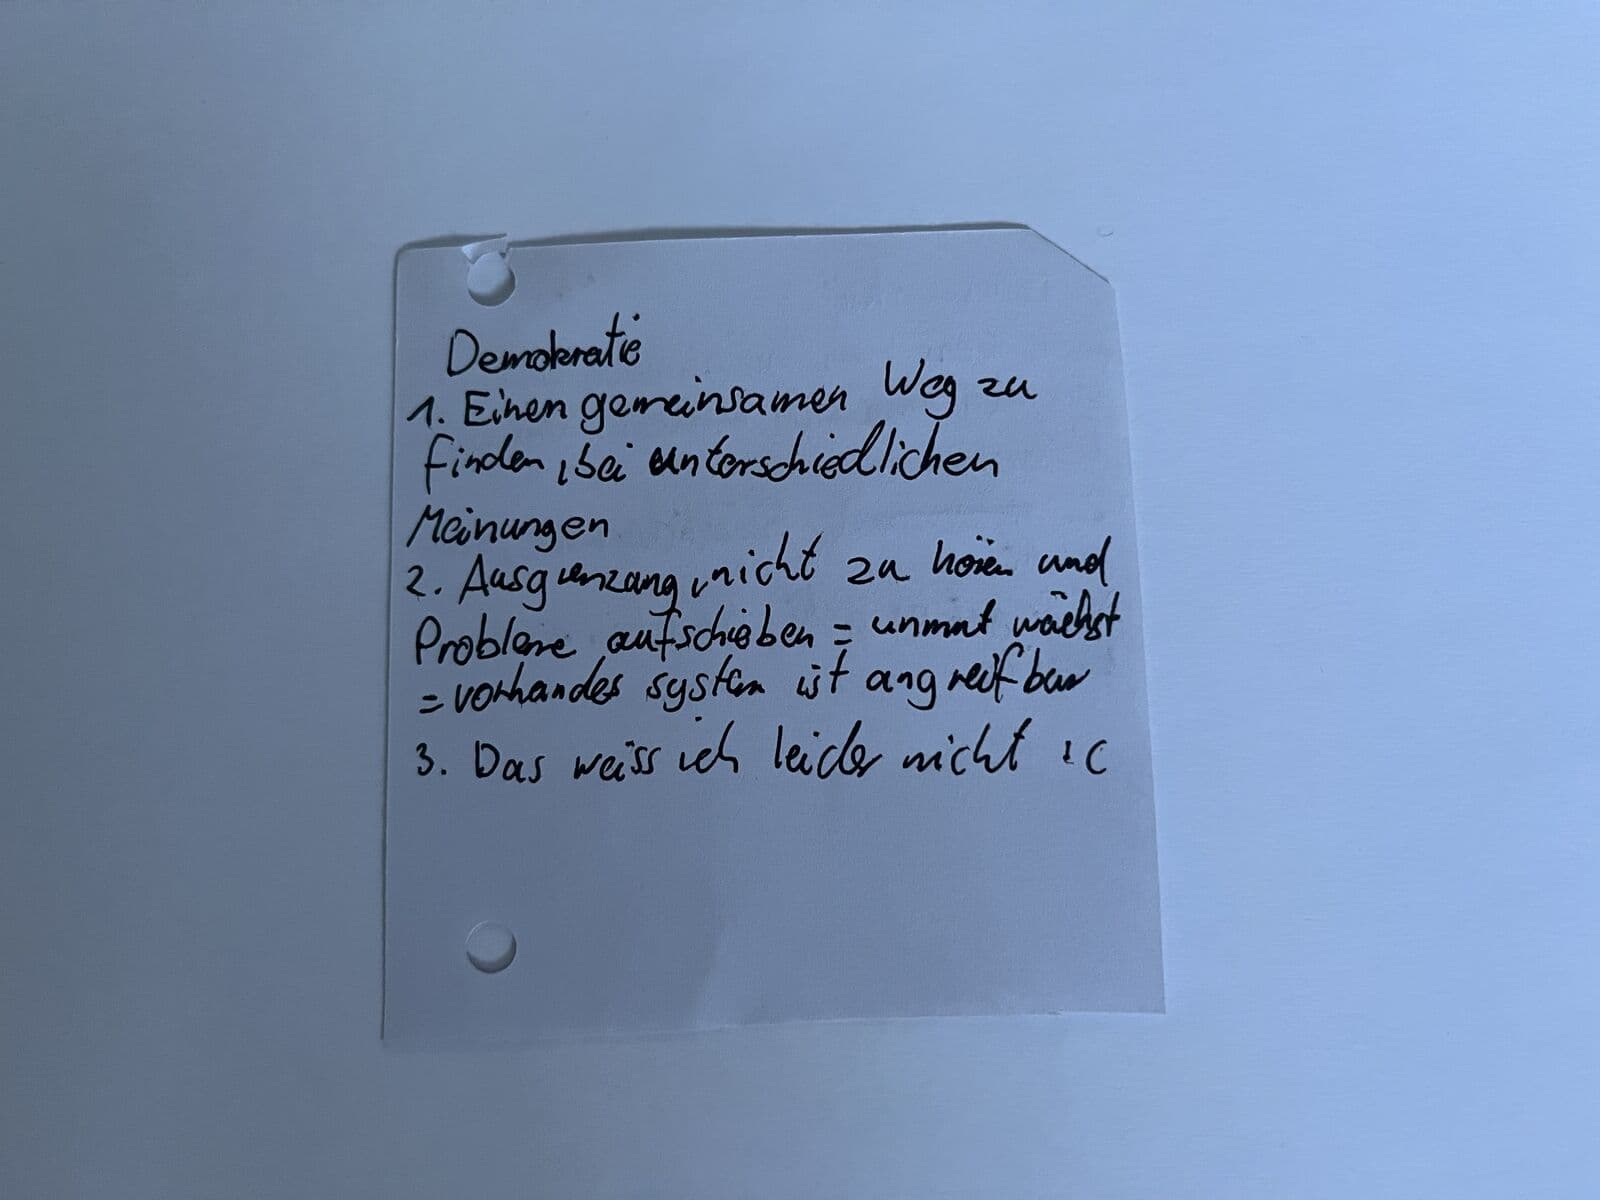 Demokratie
1. Einen gemeinsamen Weg zu
finden, bei unterschiedlichen
Meinungen
2. Ausgrenzung, nicht zu hören und
Probleme aufschieben = unmut wächst
= vorhandes system ist angreifbar
3. Das weiss ich leider nicht :C